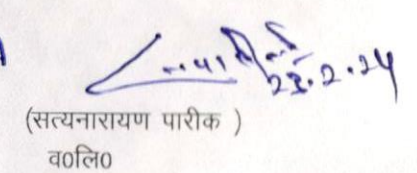 23.2.24
(सत्यनारायण पारीक )
व0लि0